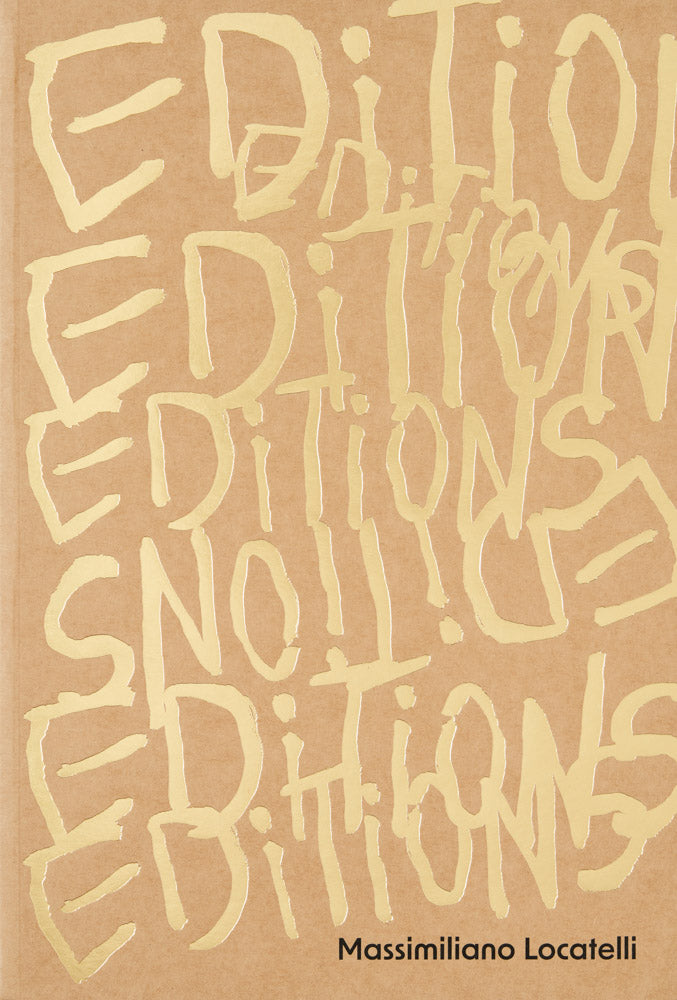 EDiTiO
EDiTiONS
EDiTiON
EDiTiONS
EDiTiONS
EDiTiONS
EDiTiONS
Massimiliano Locatelli